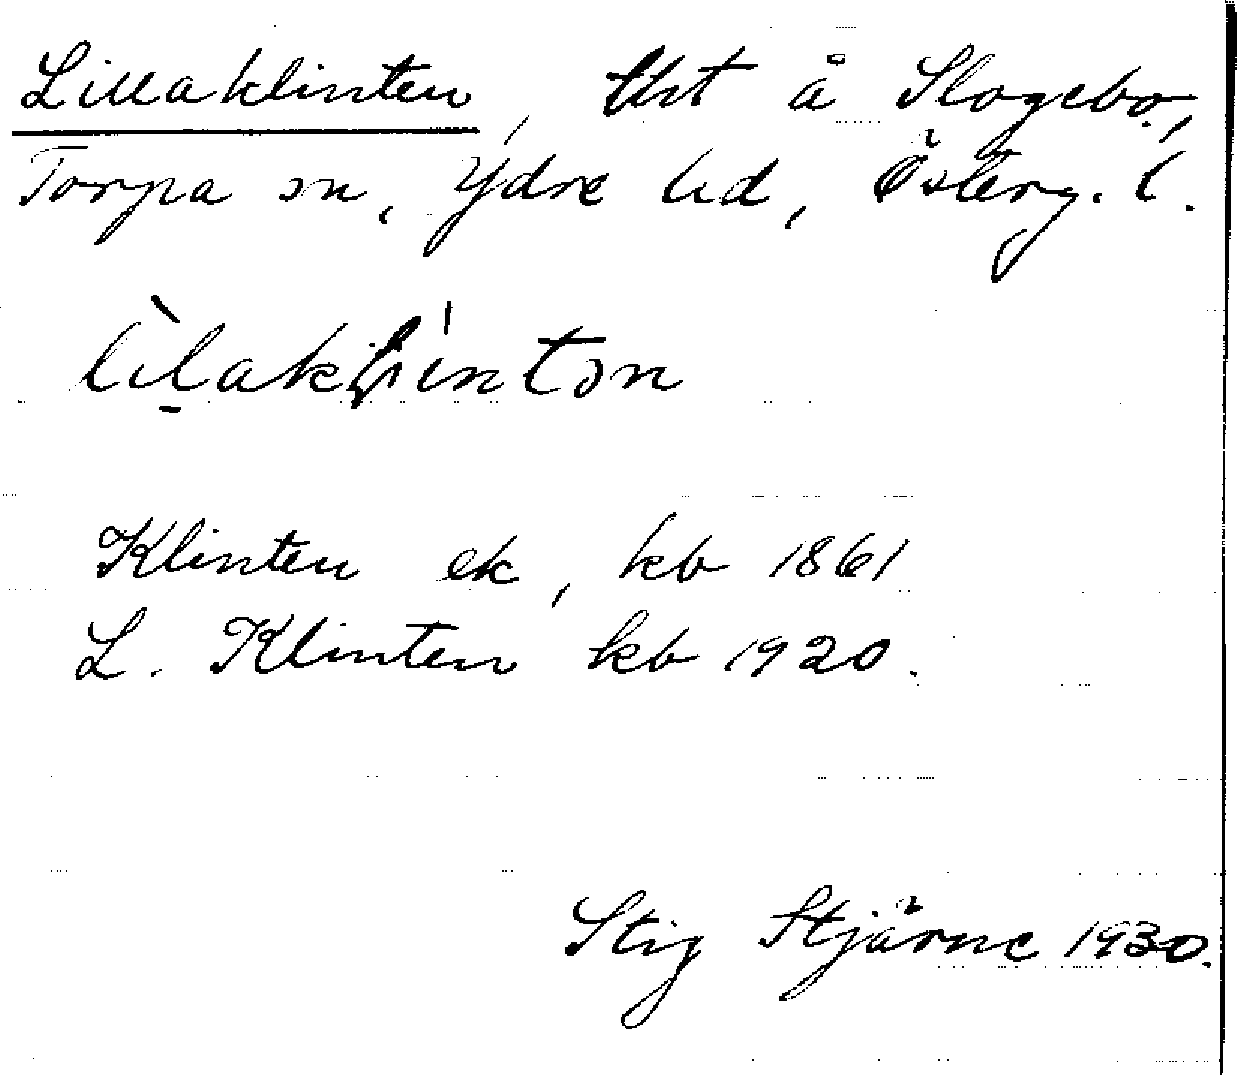 Lillaklinten, tht å Slogebo,
Torpa sn, Ydre hd, Österg. l.
lìlaklíntən
Klinten ek, kb 1861
L. Klinten kb 1920.
Stig Stjärne 1930.